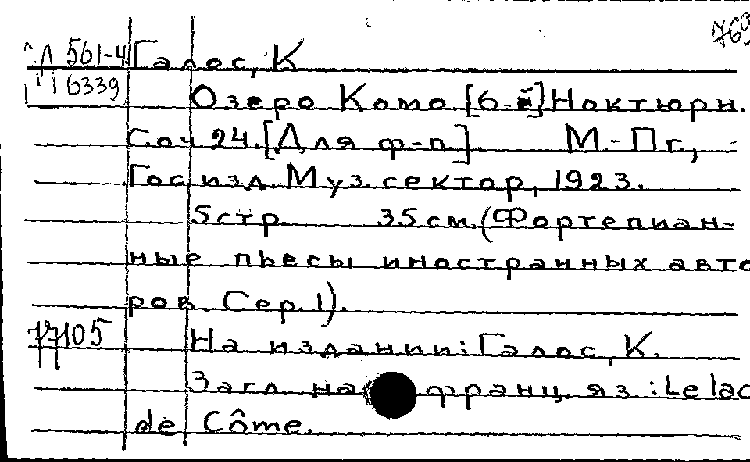 763
Л 561-4 Галос, К
16339 Озеро Комо [6-й] Ноктюрн.
Соч 24. [Для ф-п]. М.-Пг.,
Гос. изд. Муз. сектор, 1923.
5 стр. 35 см. (Фортепиан-
ные пьесы иностранных авто
ров. Сер. 1).
17105 На издании: Галос, К.
Загл. на франц. яз.: Le lac
de Côme.